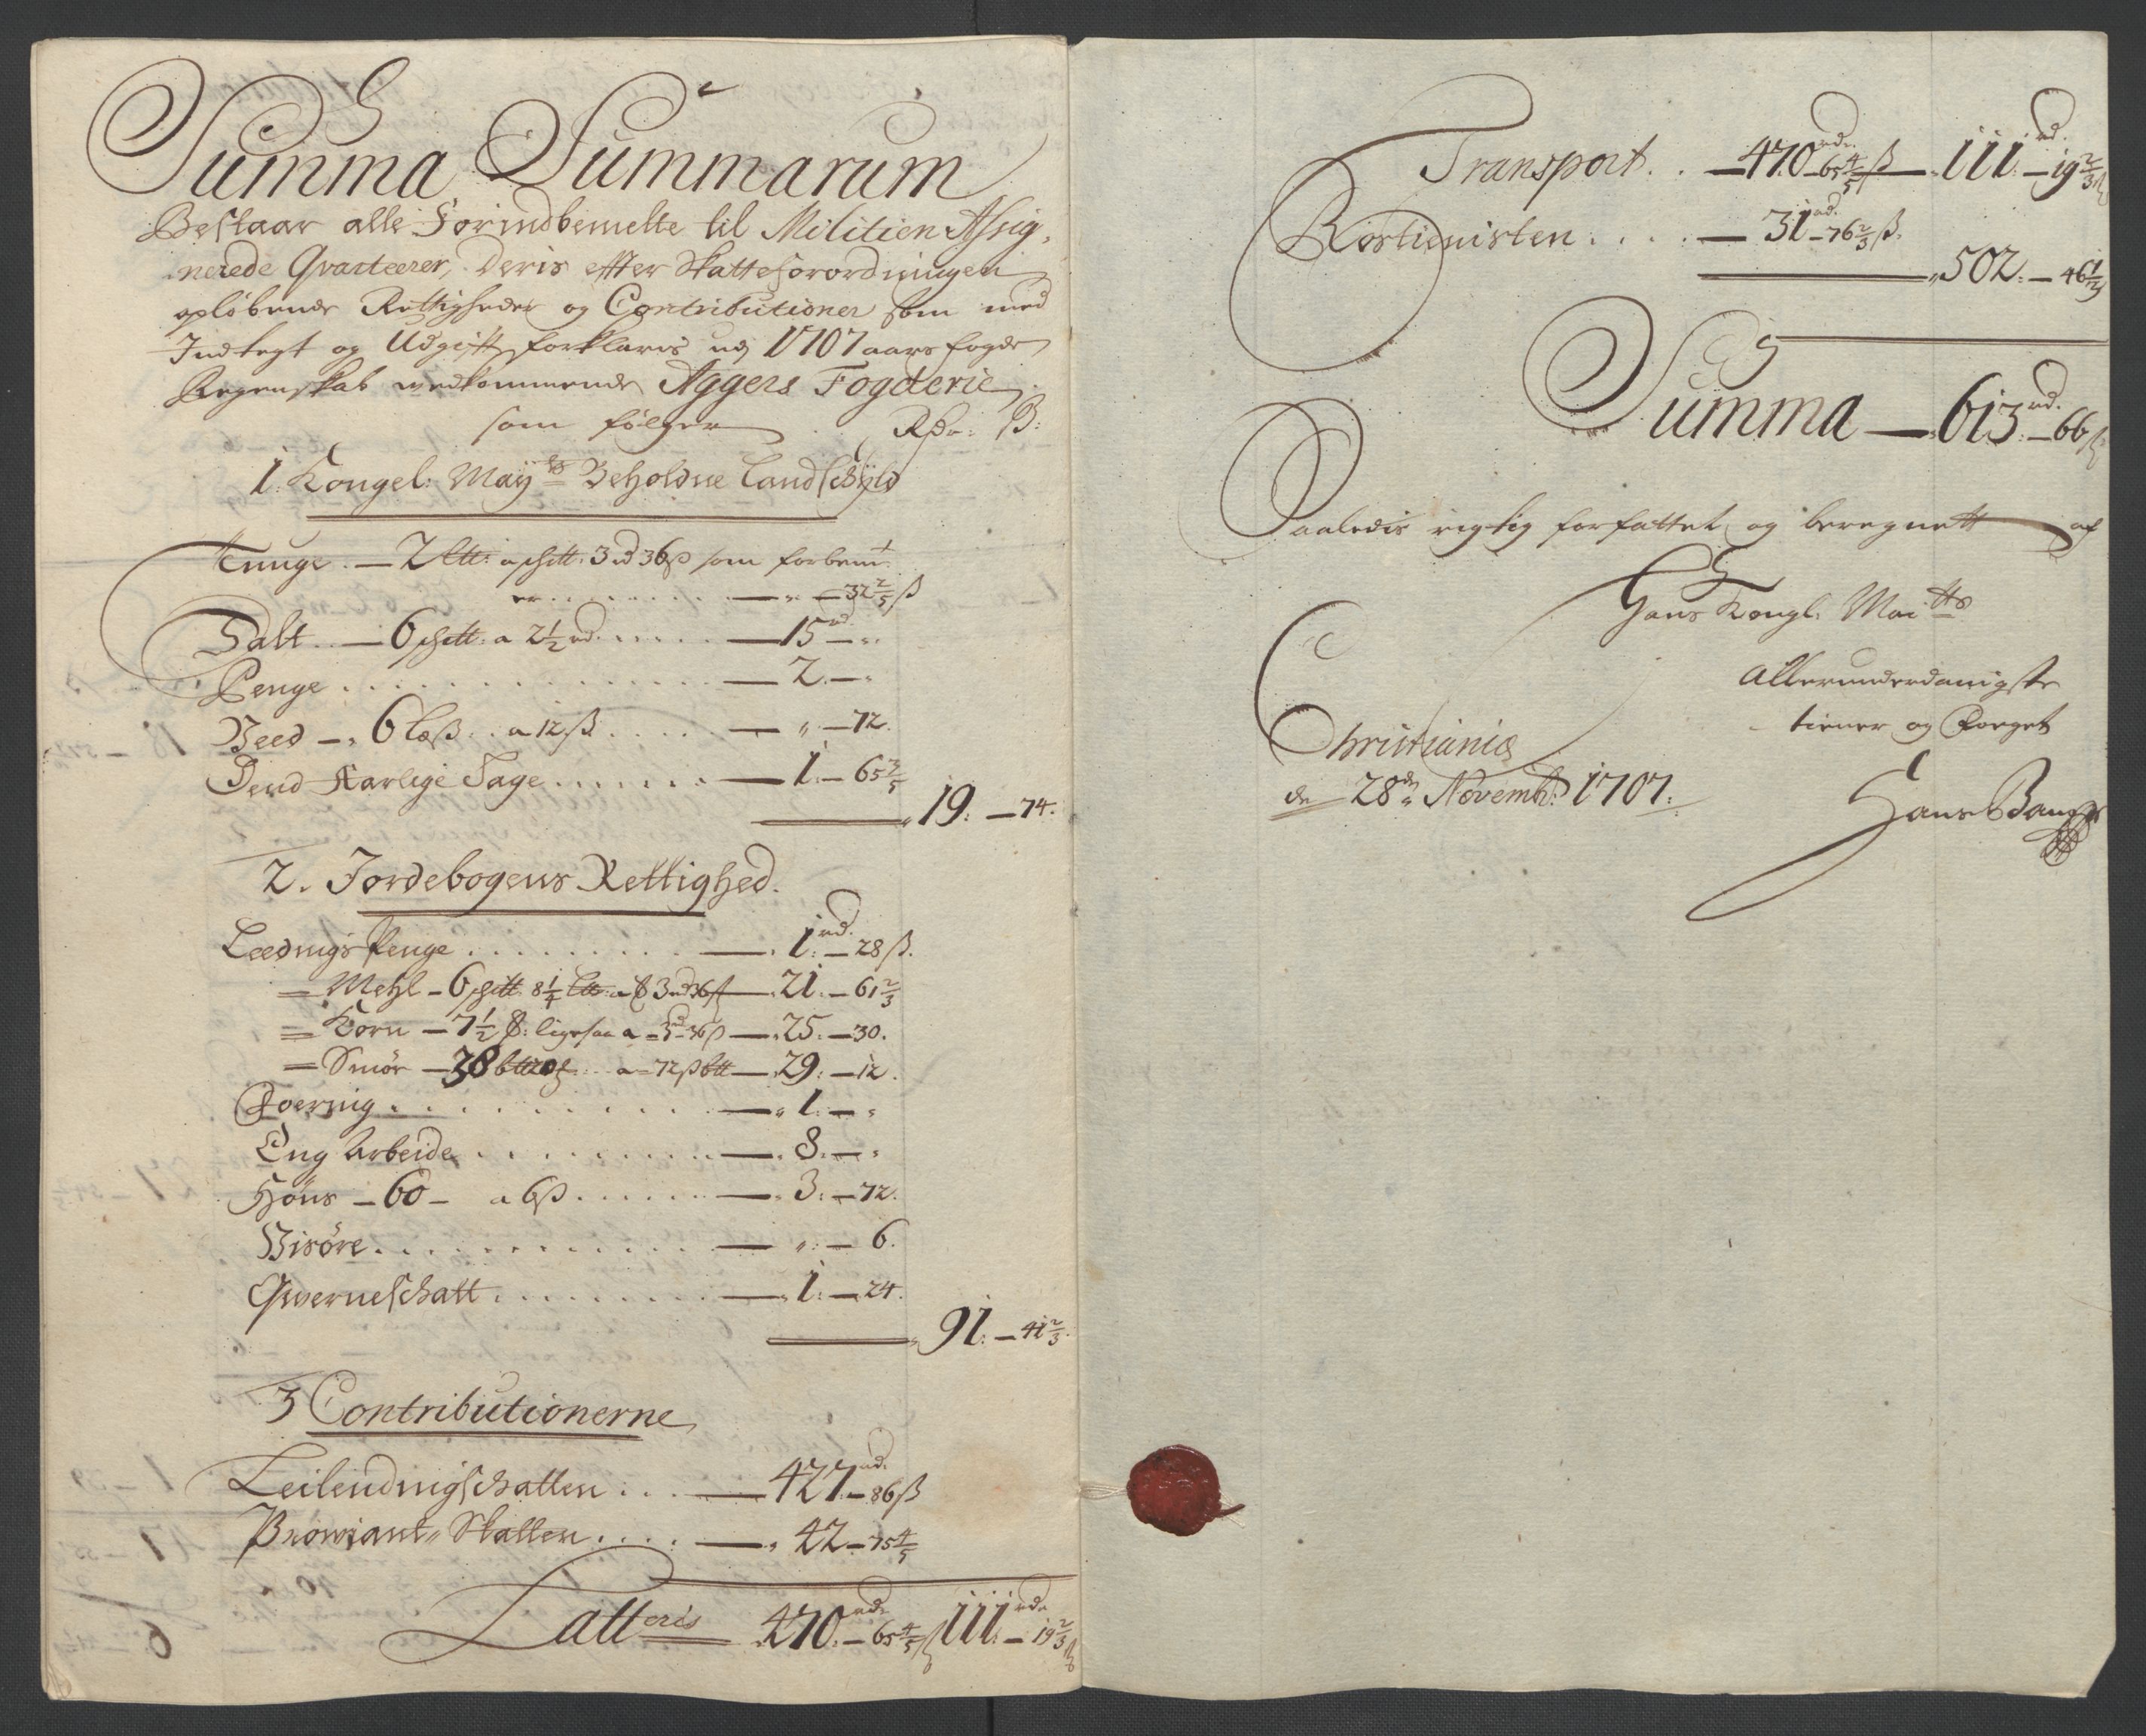 Summa Summarum
Bestaar alle Forindbemelte til Militien Assig,
nerede Qvarteerer, Deris effter Skatteforordningen
opløbende Rettigheder og Contributioner som med
Indtegt og Udgifft forklaris udj 1707 aars fogde
Regenskab vedkommende Aggers Fogderie
som følger Rdr: ß:
1. Kongel: Mayts Beholdne Landschyld
Tunge. — 2 Ltt: a schtt: 3 rd 36 ß som forbemt.
er . . . . . . . . — „ — 32 2/5 ß
Salt. — 6 schtt: a 2 1/2 rd. . . . . — 15 rd — „
Penge . . . . . . . . . — 2. — „
Veed — 6 læß . . a 12 ß . . . . — „ — 72.
Dend Aarlige Tage . . . . . . — 1. — 65 3/5
19. — 74.
2. Jordebogens Rettighed.
Leedings Penge . . . . . . . . — 1. rd. — 28 ß.
= Mehl — 6 schtt 8 1/4 Ltt: a 3 rd 36 ß — 21. — 61 2/3
= Korn — 7 1/2 : ligesaa a 3 rd 36 ß — 25. — 30.
= Smør — 38 a 72 ß btt — 29. — 12.
Foering . . . . . . . . . — 1. — „
Eng Arbeide . . . . . . . — 8. — „
Høns — 60 — a 6 ß . . . . . . — 3. — 72.
Visøre . . . . . . . . . . — „. — 6.
Qverneschatt . . . . . . . . — 1. — 24.
91. — 41 2/3.
3 Contributionerne
Leilendingschatten . . . — 427 rd. — 86 ß
Proviant Skatten . . . . — 42 — 75 4/5
Latteris 470 rd. — 65 4/5 ß 111. rd. — 19 2/3 ß
Transport . . — 470 rd. — 65 4/5 ß — 111. rd. — 19 2/3 ß
Rostienisten . . . . — 31 rd. — 76 2/3 ß.
502. — 46 1/3
Summa — 613. rd. — 66 ß
Saaledis rigtig forfattet og beregnett af
Hans Kongl: Maitts
Allerunderdanigste
tiener og Foeget
Christiania
de 28de Novembr: 1707.
Hans Bang